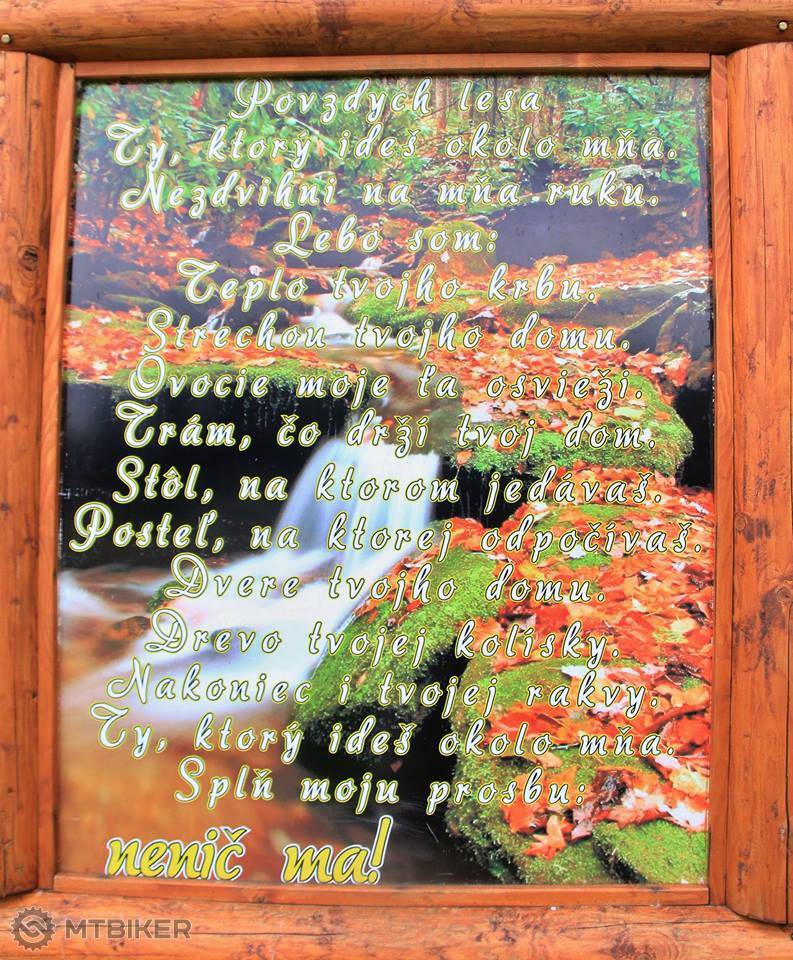 Povzdych lesa
Ty, ktorý ideš okolo mňa.
Nezdvihni na mňa ruku.
Lebo som:
Teplo tvojho krbu.
Strechou tvojho domu.
Ovocie moje ťa osvieži.
Trám, čo drží tvoj dom.
Stôl, na ktorom jedávaš.
Posteľ, na ktorej odpočívaš.
Dvere tvojho domu.
Drevo tvojej kolísky.
Nakoniec i tvojej rakvy.
Ty, ktorý ideš okolo mňa.
Splň moju prosbu:
nenič ma!
MTBIKER